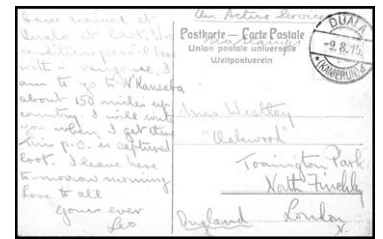 Have arrived at
Duala at last. Hot
with a vengeance. I
am to go to N'Kansaba
about 150 miles up
country. I will write
you when I get there
This p.c. is captured
loot. I leave here
to-morrow morning
Love to all
Yours ever
Leo
On Active Service
Postkarte — Carte Postale
Union postale universelle
Weltpostverein
DUALA
-9.8.15.
(KAMERUN)
Westley
"Oakwood"
Torrington Park
North Finchley
London
N.
England